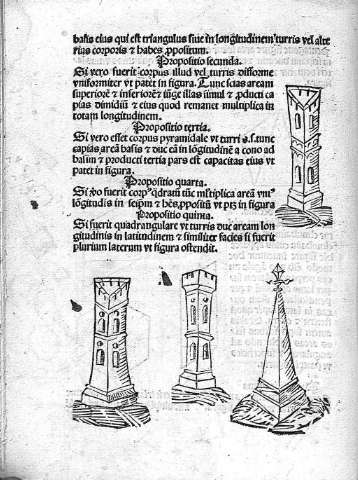 basis eius qui est triangulus siue in longitudinem turris vel alte
rius corporis & habes ppositum.
Propositio secunda.
Si vero fuerit corpus illud vel turris difforme
vniformiter vt patet in figura. Tunc scias aream
superiorē & inferiorē & iūge illas simul & pducti ca
pias dimidiū & eius quod remanet multiplica in
totam longitudinem.
Propositio tertia.
Si vero esset corpus pyramidale vt turri s. f. tunc
capias areā basis & duc eā in lōgitudinē a cono ad
basim & producti tertia pars est capacitas eius vt
patet in figura.
Propositio quarta.
Si vo fuerit corp⁹ qdratū tūc mltiplica areā vni⁹
lōgitudis in seipm & hēs ppositū vt ptz in figura
Propositio quinta.
Si fuerit quadrangulare vt turris duc aream lon
gitudinis in latitudinem & similiter facies si fuerit
plurium laterum vt figura ostendit.